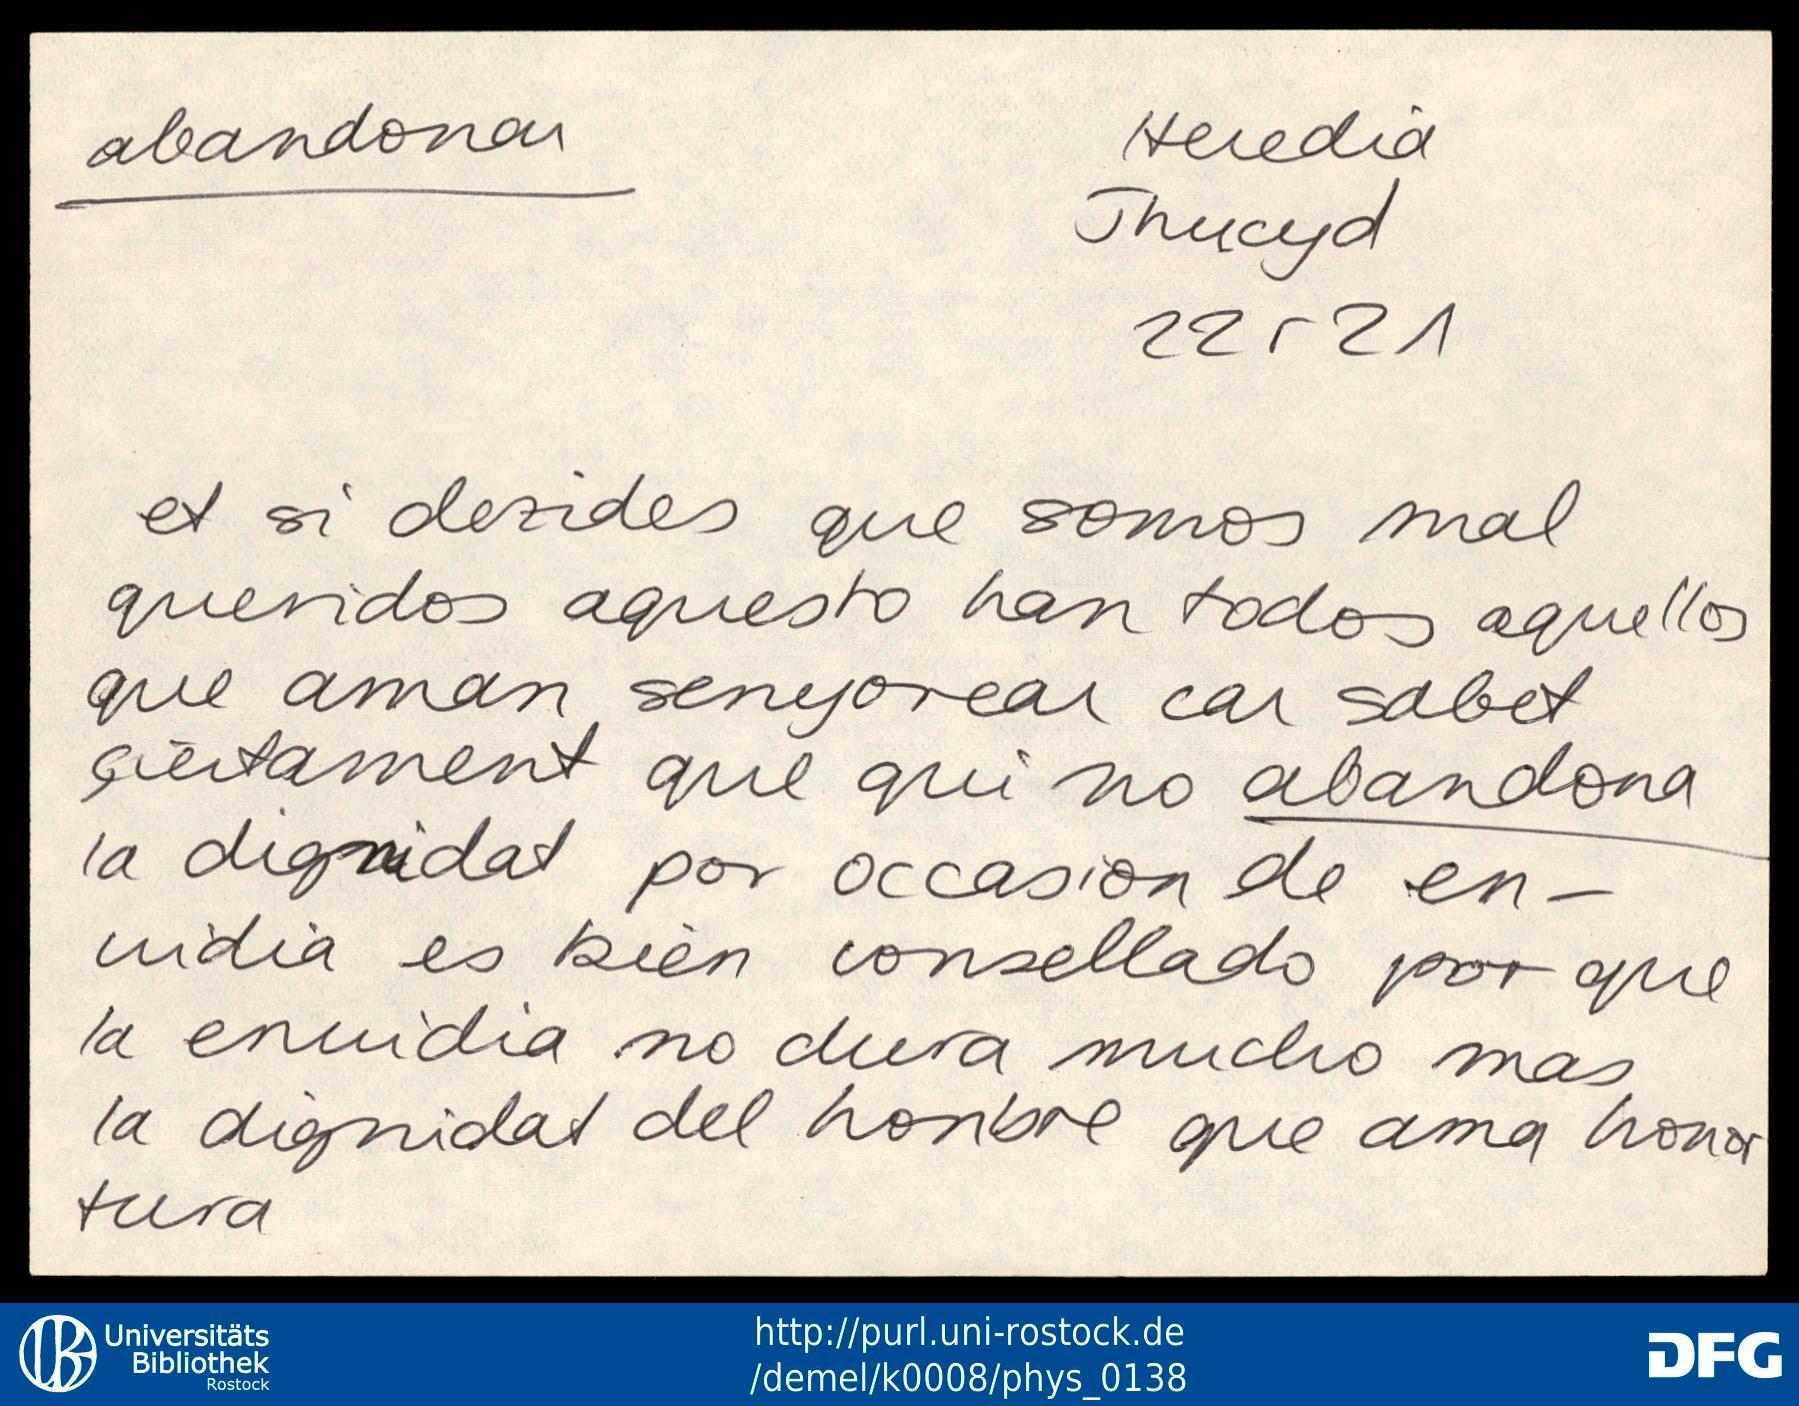 abandonar
Heredia
Thucyd
22r21
et si dezides que somos mal
queridos aquesto han todos aquellos
que aman senyorear car sabet
çiertament que qui no abandona
la dignidat por occasion de en-
uidia es bien consellado por que
la enuidia no dura mucho mas
la dignidat del honbre que ama honor
tura
Universitäts
Bibliothek
Rostock
http://purl.uni-rostock.de
/demel/k0008/phys_0138
DFG